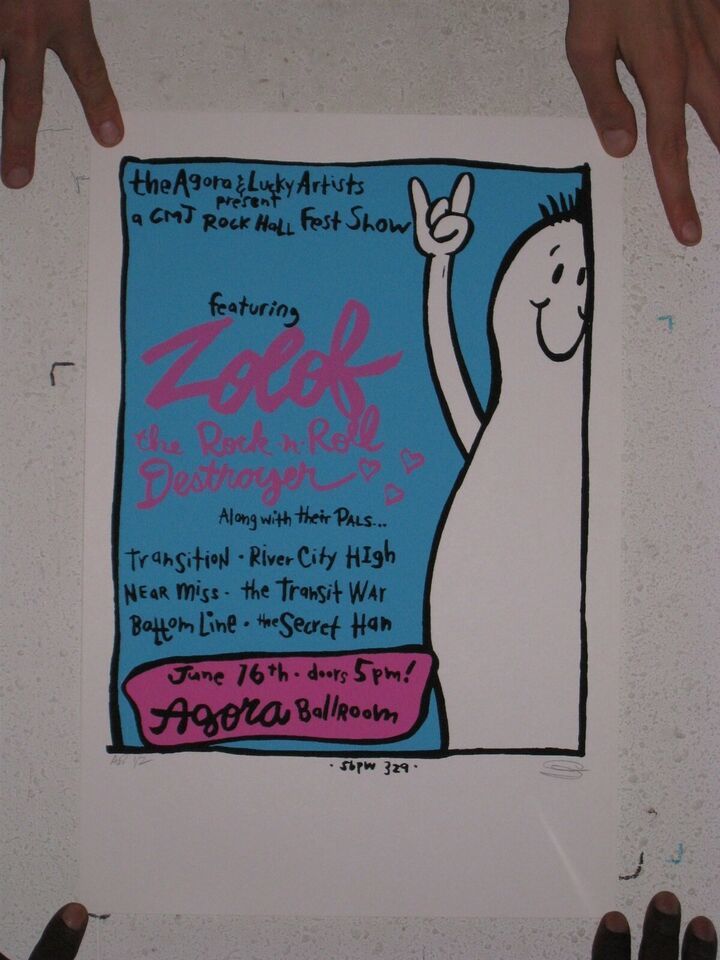 the Agora & Lucky Artists
present
a CMJ Rock Hall Fest Show
featuring
Zolof
the Rock-n-Roll
Destroyer
Along with their Pals...
Transition · River City High
Near Miss · the Transit War
Bottom Line · the Secret Han
June 16th · doors 5pm!
Agora Ballroom
· SBPW 329 ·